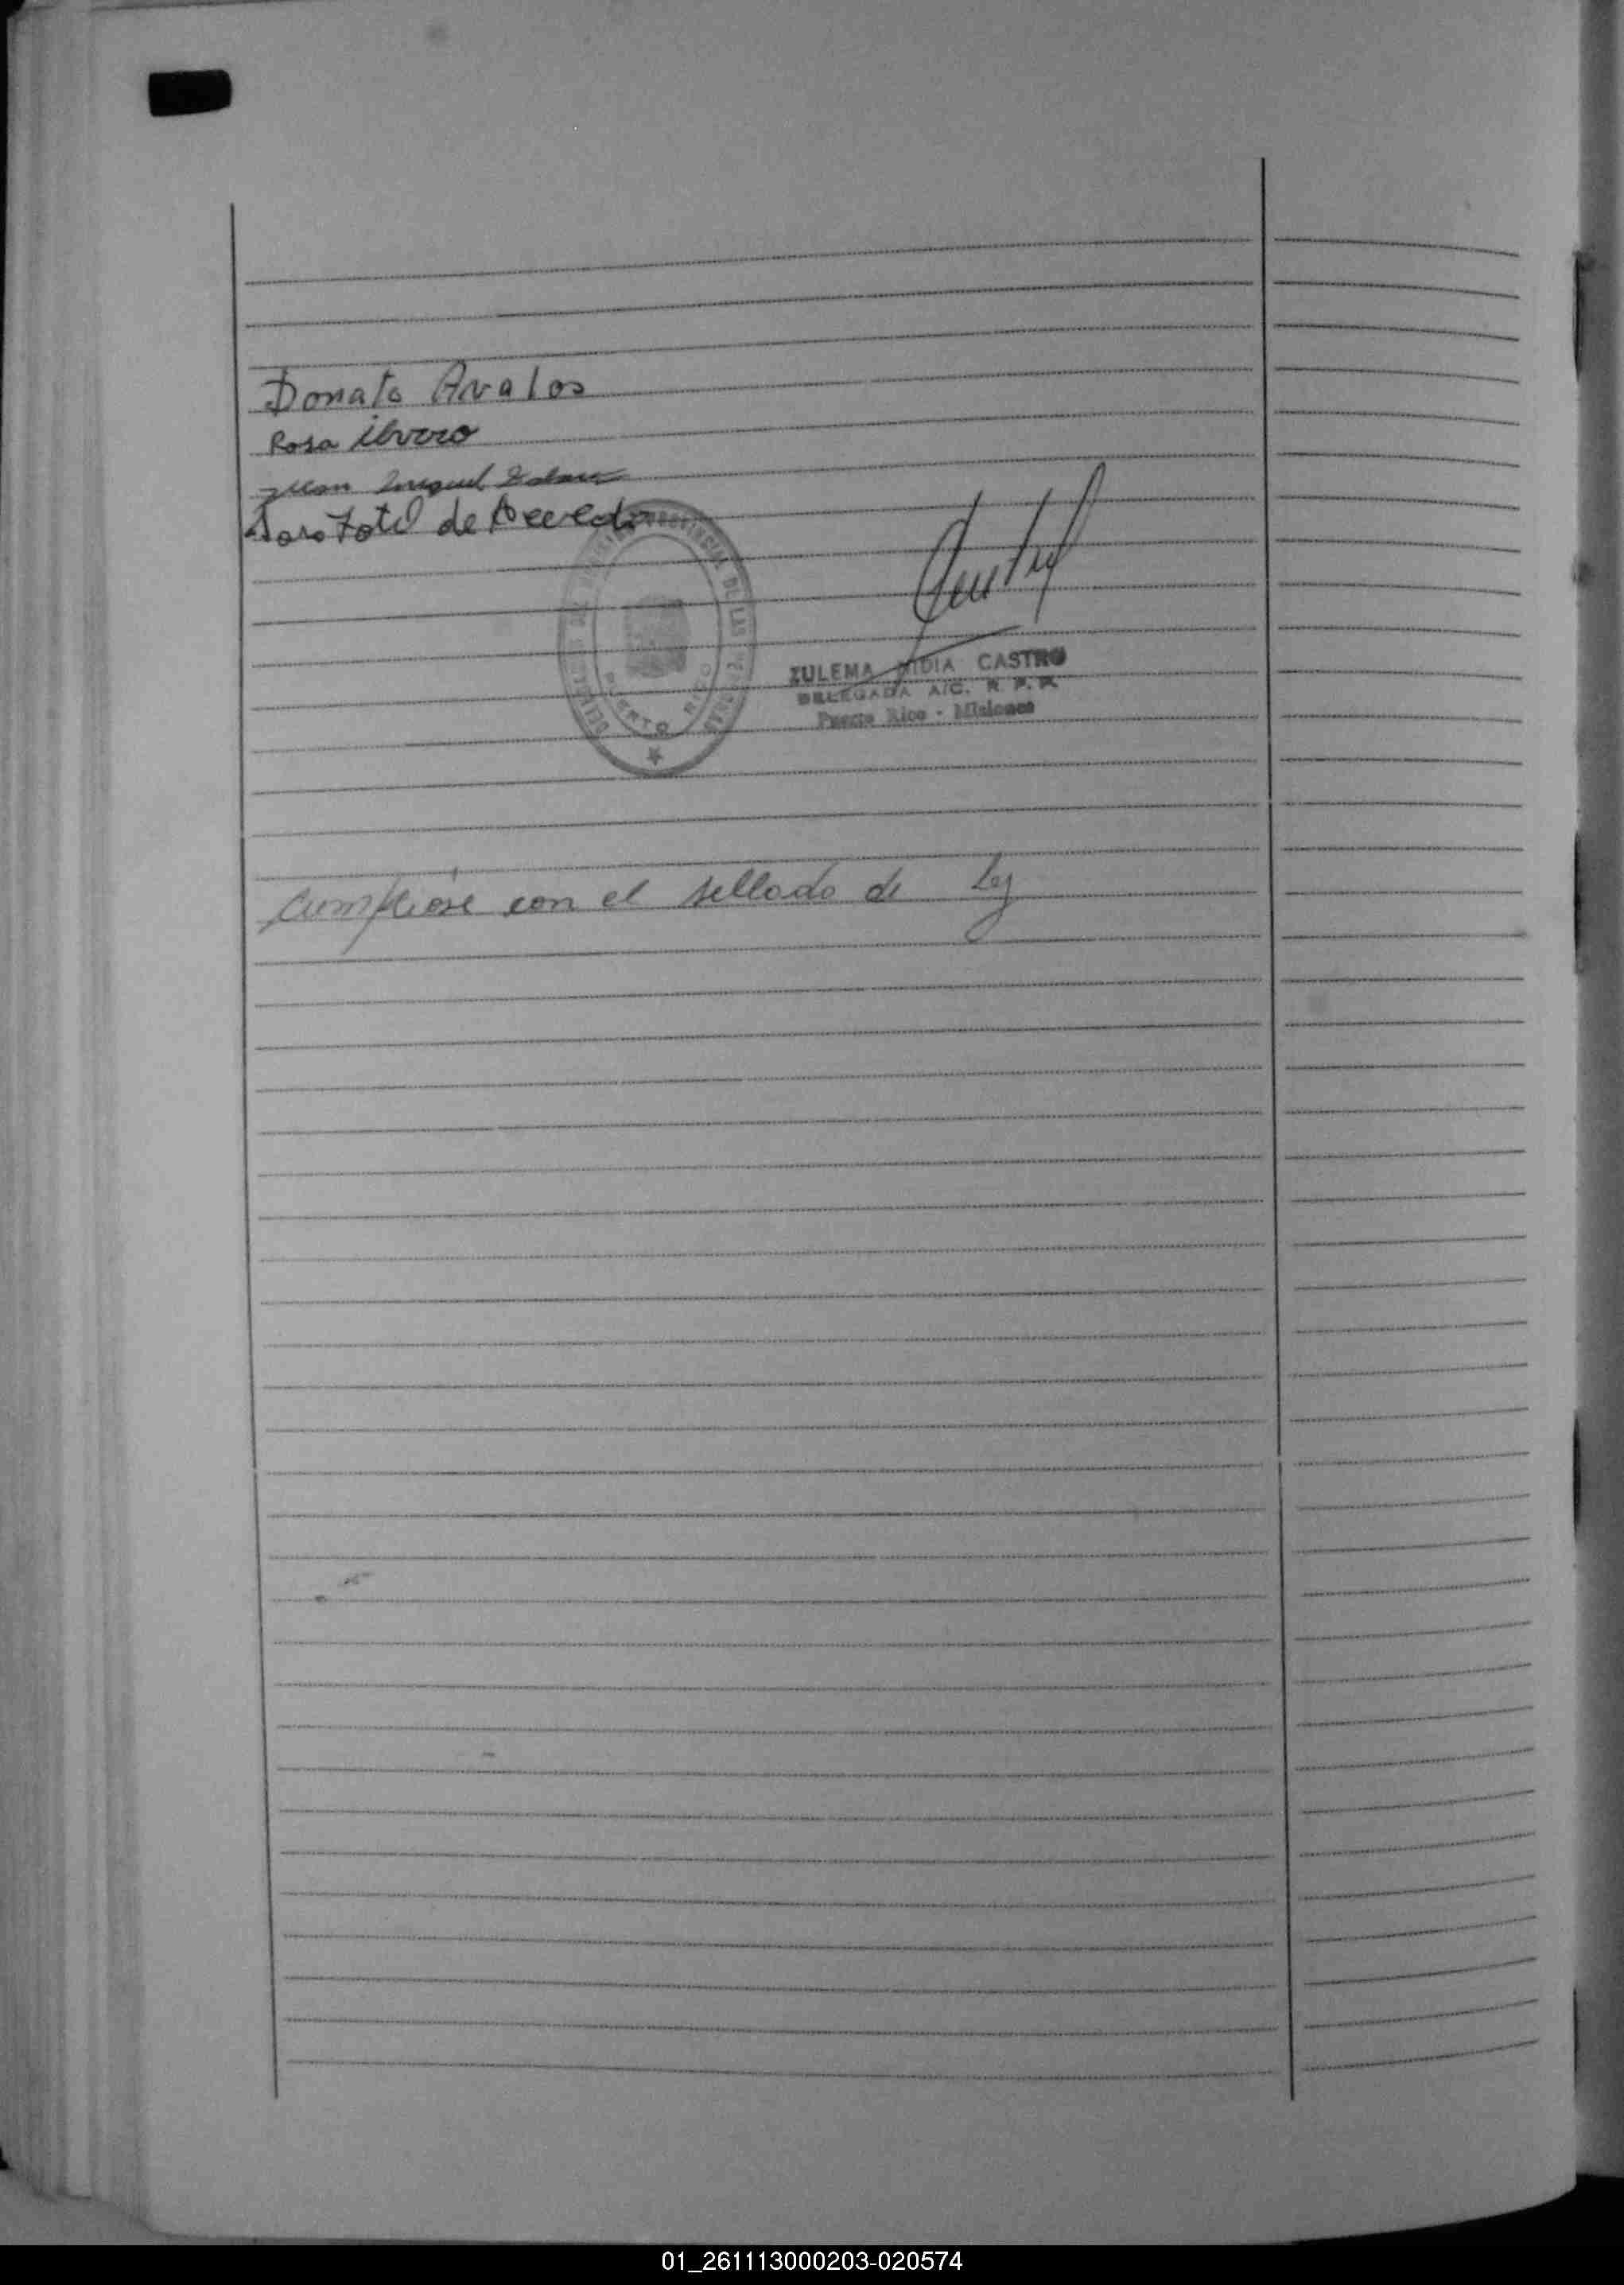 Donato Avalos
Rosa
Juan Miguel
de Acevedo
PROVINCIAL DE LAS PERSONAS
PUERTO RICO
ZULEMA NIDIA CASTRO
DELEGADA A/C. R. P. P.
Puerto Rico - Misiones
Cumpliose con el sellado de Ley
01_261113000203-020574